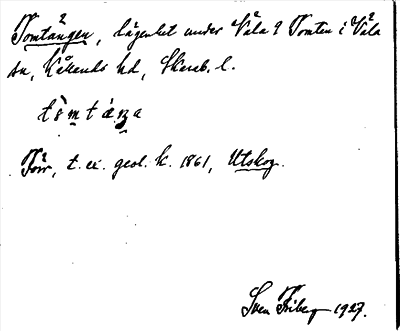 Tomtängen, lägenhet under Våla 9 Tomten i Våla
sn, Kållands hd, Skarab. l.
tòmtäŋa
Förr, t. ex. geol. k. 1861, Utskog.
Sven Friberg 1927.